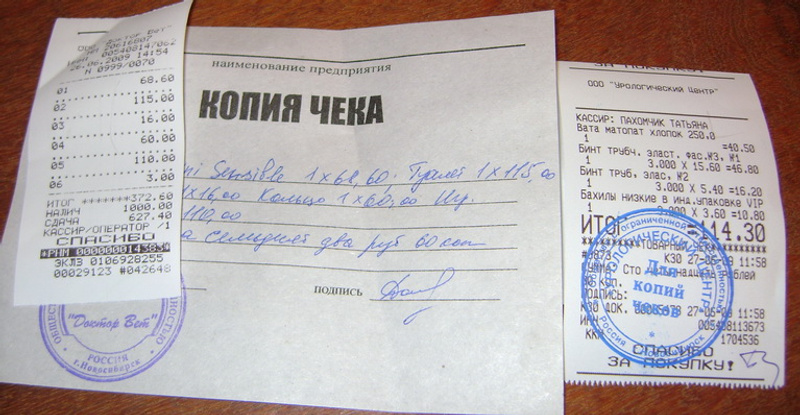 "Доктор Вет"
005408147062
26.06.2009 14:54
N 0999/0070
01 68.60
02 115.00
03 16.00
04 60.00
05 110.00
06 3.00
ИТОГ *******372.60
НАЛИЧ 1000.00
СДАЧА 627.40
КАССИР/ОПЕРАТОР /1
СПАСИБО
*РНМ 000000014383*
ЭКЛЗ 0106928255
00029123 #042648
наименование предприятия
КОПИЯ ЧЕКА
Sensible 1x68,60; Туалет 1x115,00
1x16,00 Кольцо 1x60,00
110,00
семьдесят два руб 60 коп
подпись
"Доктор Вет"
РОССИЯ
г.Новосибирск
ЗА ПОКУПКУ!
ООО "Урологический Центр"
КАССИР: ПАХОМЧИК ТАТЬЯНА
Вата матопат хлопок 250.0
1 =40.50
Бинт трубч. эласт. фас.№3, №1
1 3.000 X 15.60 =46.80
Бинт труб. эласт, №2
1 3.000 X 5.40 =16.20
Бахилы низкие в инд.упаковке VIP
1 3.000 X 3.60 =10.80
ИТОГ =114.30
ТОВАРНЫЙ ЧЕК
#9873 К30 27-06-09 11:58
Сто рублей
30 КОП.
ПОДПИСЬ:
К30 ДОК. 27-06-09 11:58
ИНН 005408113673
ККМ 1704536
СПАСИБО
ЗА ПОКУПКУ!
Для
копий
чеков